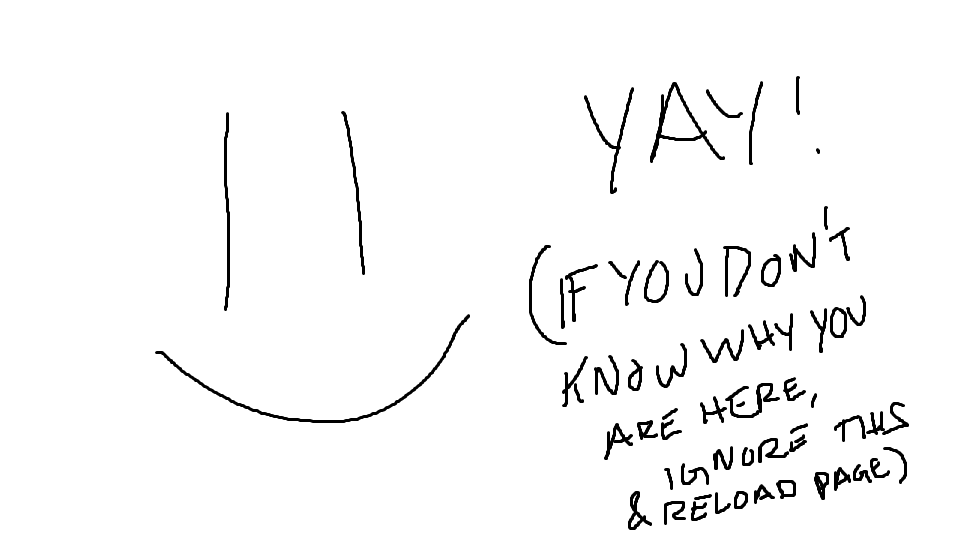 YAY!
(IF YOU DON'T
KNOW WHY YOU
ARE HERE,
IGNORE THIS
& RELOAD PAGE)